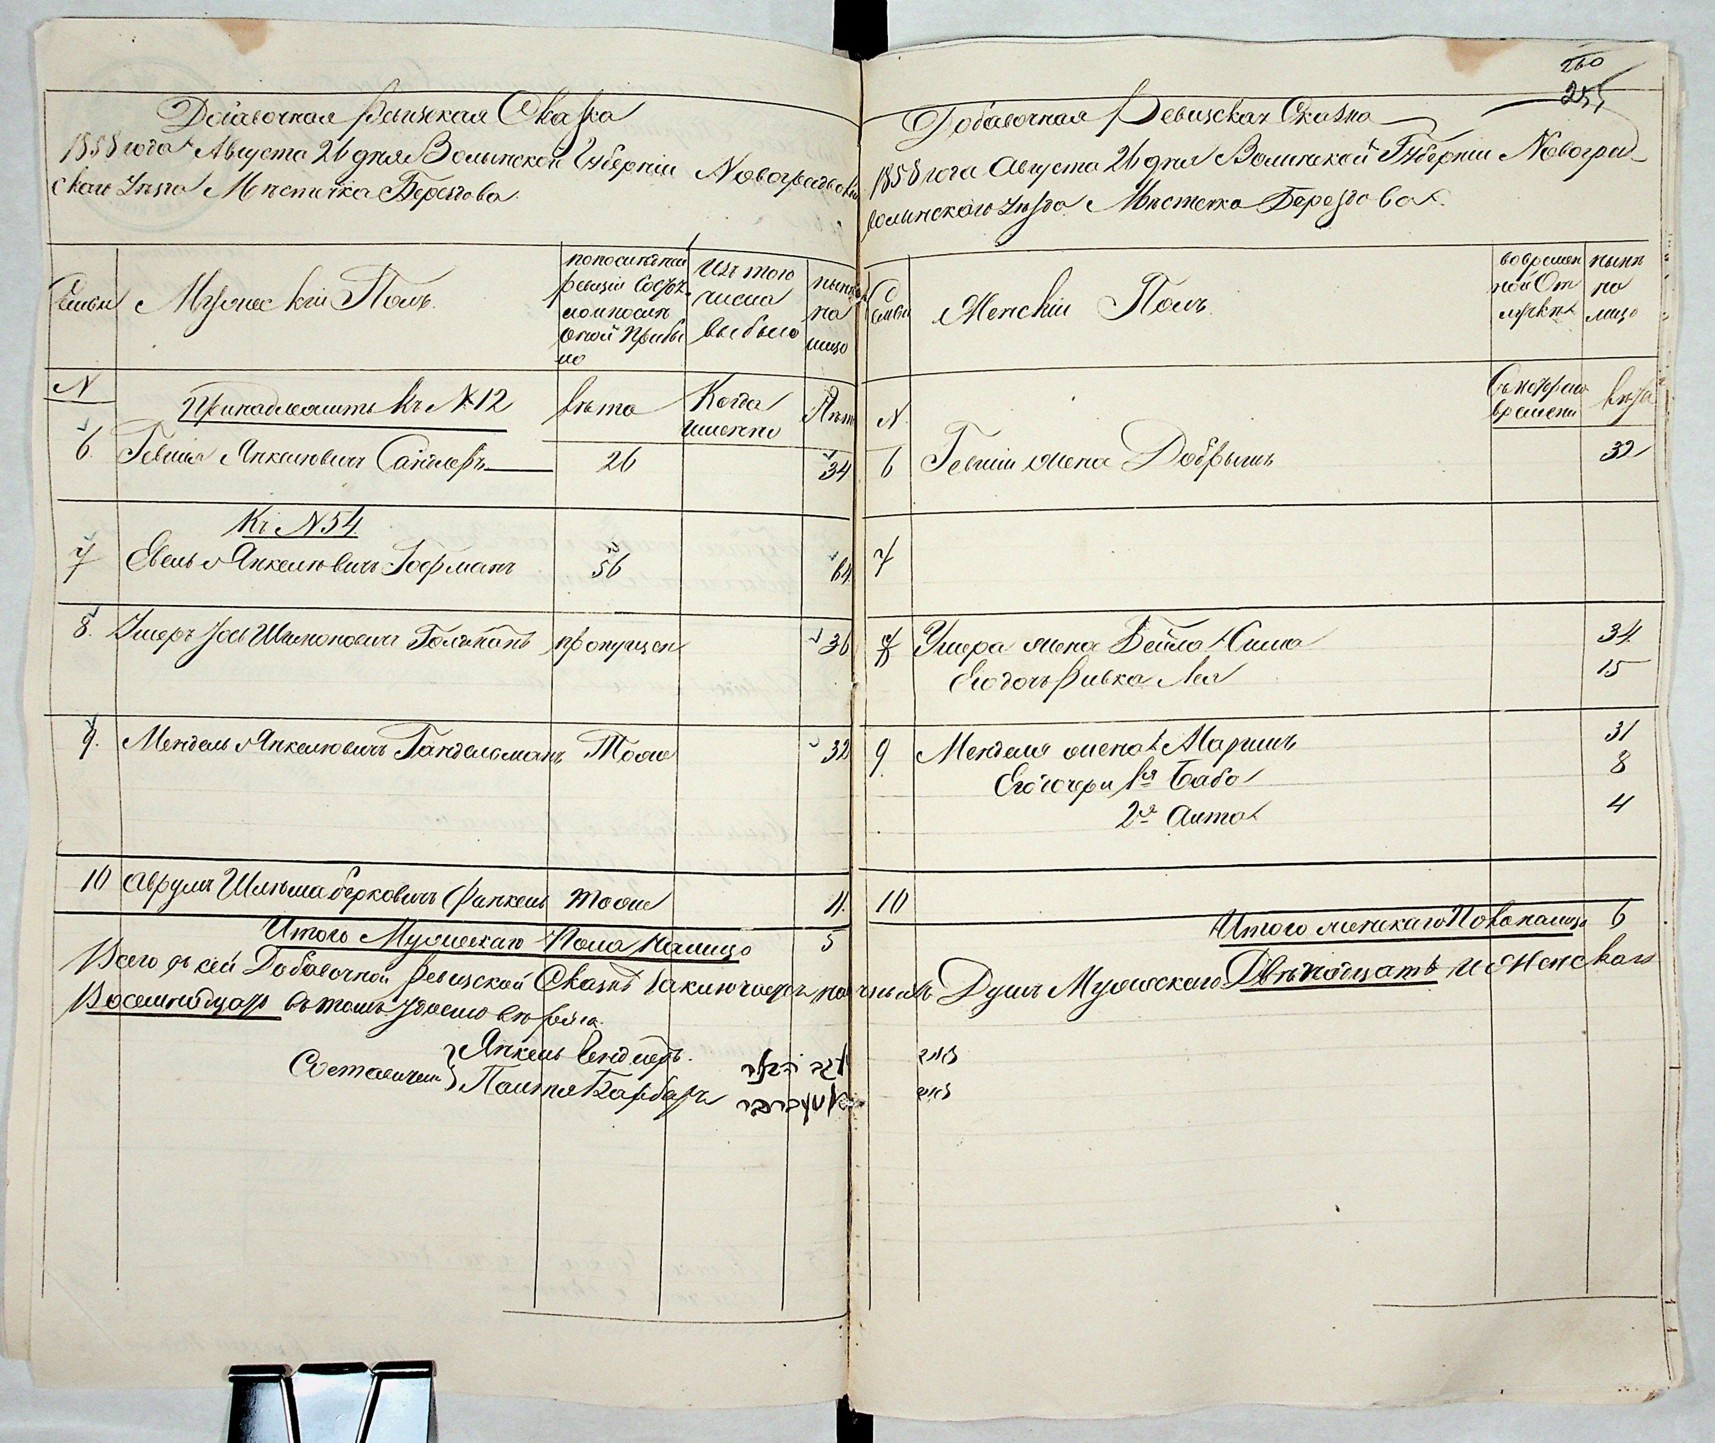 Добавочная Ревизская Сказка
1858 года Августа 26 дня Волынской Губерніи Новоградволын
скаго Уѣзда Мѣстечка Берездова
Семьи
Мужескій Полъ
попослѣдней
ревизіи состо
яло и послѣ
оной прибы
ло
Изъ того
числа
выбыло
нынѣ
на
лицо
N
Принадлежитъ къ № 12
лѣта
Когда
именно
Лѣта
6
Гевшія Янкелювичъ Сандлеръ
26
34
Къ N 54
7
Евель Янкелювичъ Гофманъ
56
64
8.
Ушеръ Іось Шимоновичъ
пропущен
36
9.
Мендель Янкелювичъ Гандельсманъ
Тоже
32
10
Аврумъ Шлёма Берковичъ Финкель
тоже
11.
Итого Мужескаго Пола Налицо
5
260
255
Добавочная Ревизская Сказка
1858 года Августа 26 дня Волынской Губерніи Новоград
волынскаго Уѣзда Мѣстечка Берездова
Семьи
Женскій Полъ
вовремен
ной От
лучкѣ
нынѣ
на
лицо
N.
Съ котораго
времени
лѣта
6
Гевшіи жена Добрышъ
32
7
8
Ушера жена Бейла
34
Его дочь Ривка Лея
15
9
Менделя жена Маришъ
31
Его дочери 1я Баба
8
2я
4
10
Итого женскаго Пола налицо
6
Всего въ сей Добавочной Ревизской Сказкѣ заключается наличныхъ Душъ Мужескаго Двѣнадцать и Женскаго
Восемнадцать въ томъ удостовѣряемъ
Составители
Янкель
Пантя Барбаръ